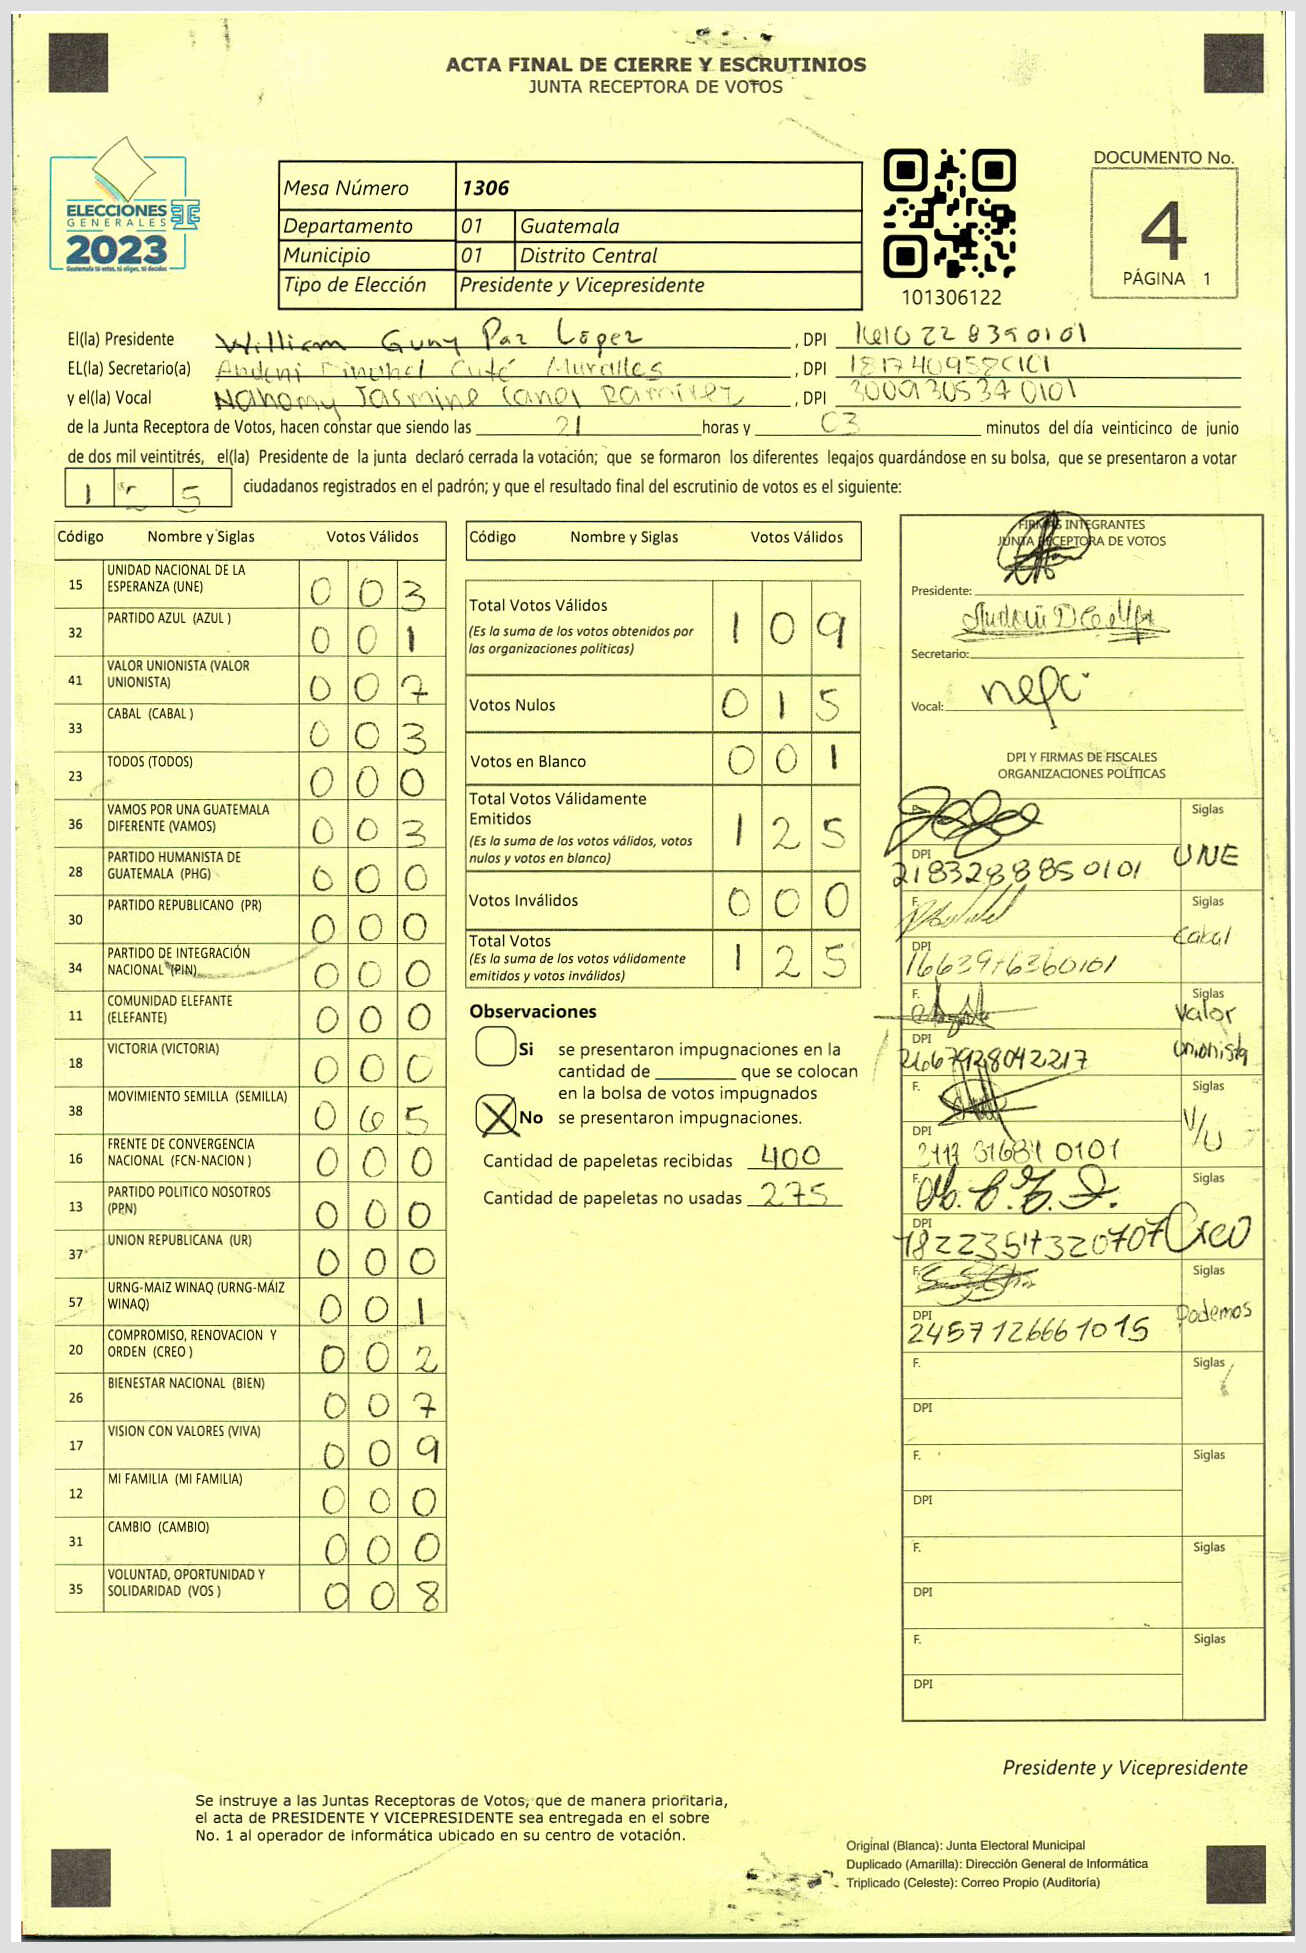 ACTA FINAL DE CIERRE Y ESCRUTINIOS
JUNTA RECEPTORA DE VOTOS
ELECCIONES
GENERALES
2023
Guatemala tú votas, tú eliges, tú decides
Mesa Número 1306
Departamento 01 Guatemala
Municipio 01 Distrito Central
Tipo de Elección Presidente y Vicepresidente
101306122
DOCUMENTO No.
4
PÁGINA 1
El(la) Presidente William Guny Paz López , DPI 1610228390101
EL(la) Secretario(a) , DPI
y el(la) Vocal Nahomy Jasmine Canel Ramirez , DPI 3000930534 0101
de la Junta Receptora de Votos, hacen constar que siendo las 21 horas y 03 minutos del día veinticinco de junio
de dos mil veintitrés, el(la) Presidente de la junta declaró cerrada la votación; que se formaron los diferentes legajos quardándose en su bolsa, que se presentaron a votar
1 2 5 ciudadanos registrados en el padrón; y que el resultado final del escrutinio de votos es el siguiente:
Código Nombre y Siglas Votos Válidos
15 UNIDAD NACIONAL DE LA ESPERANZA (UNE) 0 0 3
32 PARTIDO AZUL (AZUL ) 0 0 1
41 VALOR UNIONISTA (VALOR UNIONISTA) 0 0 7
33 CABAL (CABAL ) 0 0 3
23 TODOS (TODOS) 0 0 0
36 VAMOS POR UNA GUATEMALA DIFERENTE (VAMOS) 0 0 3
28 PARTIDO HUMANISTA DE GUATEMALA (PHG) 0 0 0
30 PARTIDO REPUBLICANO (PR) 0 0 0
34 PARTIDO DE INTEGRACIÓN NACIONAL (PIN) 0 0 0
11 COMUNIDAD ELEFANTE (ELEFANTE) 0 0 0
18 VICTORIA (VICTORIA) 0 0 0
38 MOVIMIENTO SEMILLA (SEMILLA) 0 6 5
16 FRENTE DE CONVERGENCIA NACIONAL (FCN-NACION ) 0 0 0
13 PARTIDO POLITICO NOSOTROS (PPN) 0 0 0
37 UNION REPUBLICANA (UR) 0 0 0
57 URNG-MAIZ WINAQ (URNG-MÁIZ WINAQ) 0 0 1
20 COMPROMISO, RENOVACION Y ORDEN (CREO ) 0 0 2
26 BIENESTAR NACIONAL (BIEN) 0 0 7
17 VISION CON VALORES (VIVA) 0 0 9
12 MI FAMILIA (MI FAMILIA) 0 0 0
31 CAMBIO (CAMBIO) 0 0 0
35 VOLUNTAD, OPORTUNIDAD Y SOLIDARIDAD (VOS ) 0 0 8
Código Nombre y Siglas Votos Válidos
Total Votos Válidos 1 0 9
(Es la suma de los votos obtenidos por
las organizaciones políticas)
Votos Nulos 0 1 5
Votos en Blanco 0 0 1
Total Votos Válidamente
Emitidos 1 2 5
(Es la suma de los votos válidos, votos
nulos y votos en blanco)
Votos Inválidos 0 0 0
Total Votos 1 2 5
(Es la suma de los votos válidamente
emitidos y votos inválidos)
Observaciones
Si se presentaron impugnaciones en la
cantidad de ________ que se colocan
en la bolsa de votos impugnados
X No se presentaron impugnaciones.
Cantidad de papeletas recibidas 400
Cantidad de papeletas no usadas 275
FIRMAS INTEGRANTES
JUNTA RECEPTORA DE VOTOS
Presidente:
Secretario:
Vocal:
DPI Y FIRMAS DE FISCALES
ORGANIZACIONES POLÍTICAS
Siglas
DPI UNE
2183288850101
F. Siglas
DPI Cabal
F. Siglas
Valor
DPI Unionista
2667928042217
F. Siglas
DPI V/U
F. Siglas
DPI Creo
F. Siglas
DPI Podemos
2457126661015
F. Siglas
DPI
F. Siglas
DPI
F. Siglas
DPI
F. Siglas
DPI
Presidente y Vicepresidente
Se instruye a las Juntas Receptoras de Votos, que de manera prioritaria,
el acta de PRESIDENTE Y VICEPRESIDENTE sea entregada en el sobre
No. 1 al operador de informática ubicado en su centro de votación.
Original (Blanca): Junta Electoral Municipal
Duplicado (Amarilla): Dirección General de Informática
Triplicado (Celeste): Correo Propio (Auditoría)